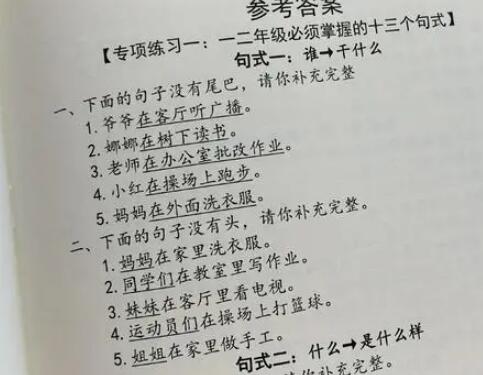 参考答案
【专项练习一：一二年级必须掌握的十三个句式】
句式一：谁→干什么
一、下面的句子没有尾巴，请你补充完整
1.爷爷在客厅听广播。
2.娜娜在树下读书。
3.老师在办公室批改作业。
4.小红在操场上跑步。
5.妈妈在外面洗衣服。
二、下面的句子没有头，请你补充完整。
1.妈妈在家里洗衣服。
2.同学们在教室里写作业。
3.妹妹在客厅里看电视。
4.运动员们在操场上打篮球。
5.姐姐在家里做手工。
句式二：什么→是什么样
请你补充完整。